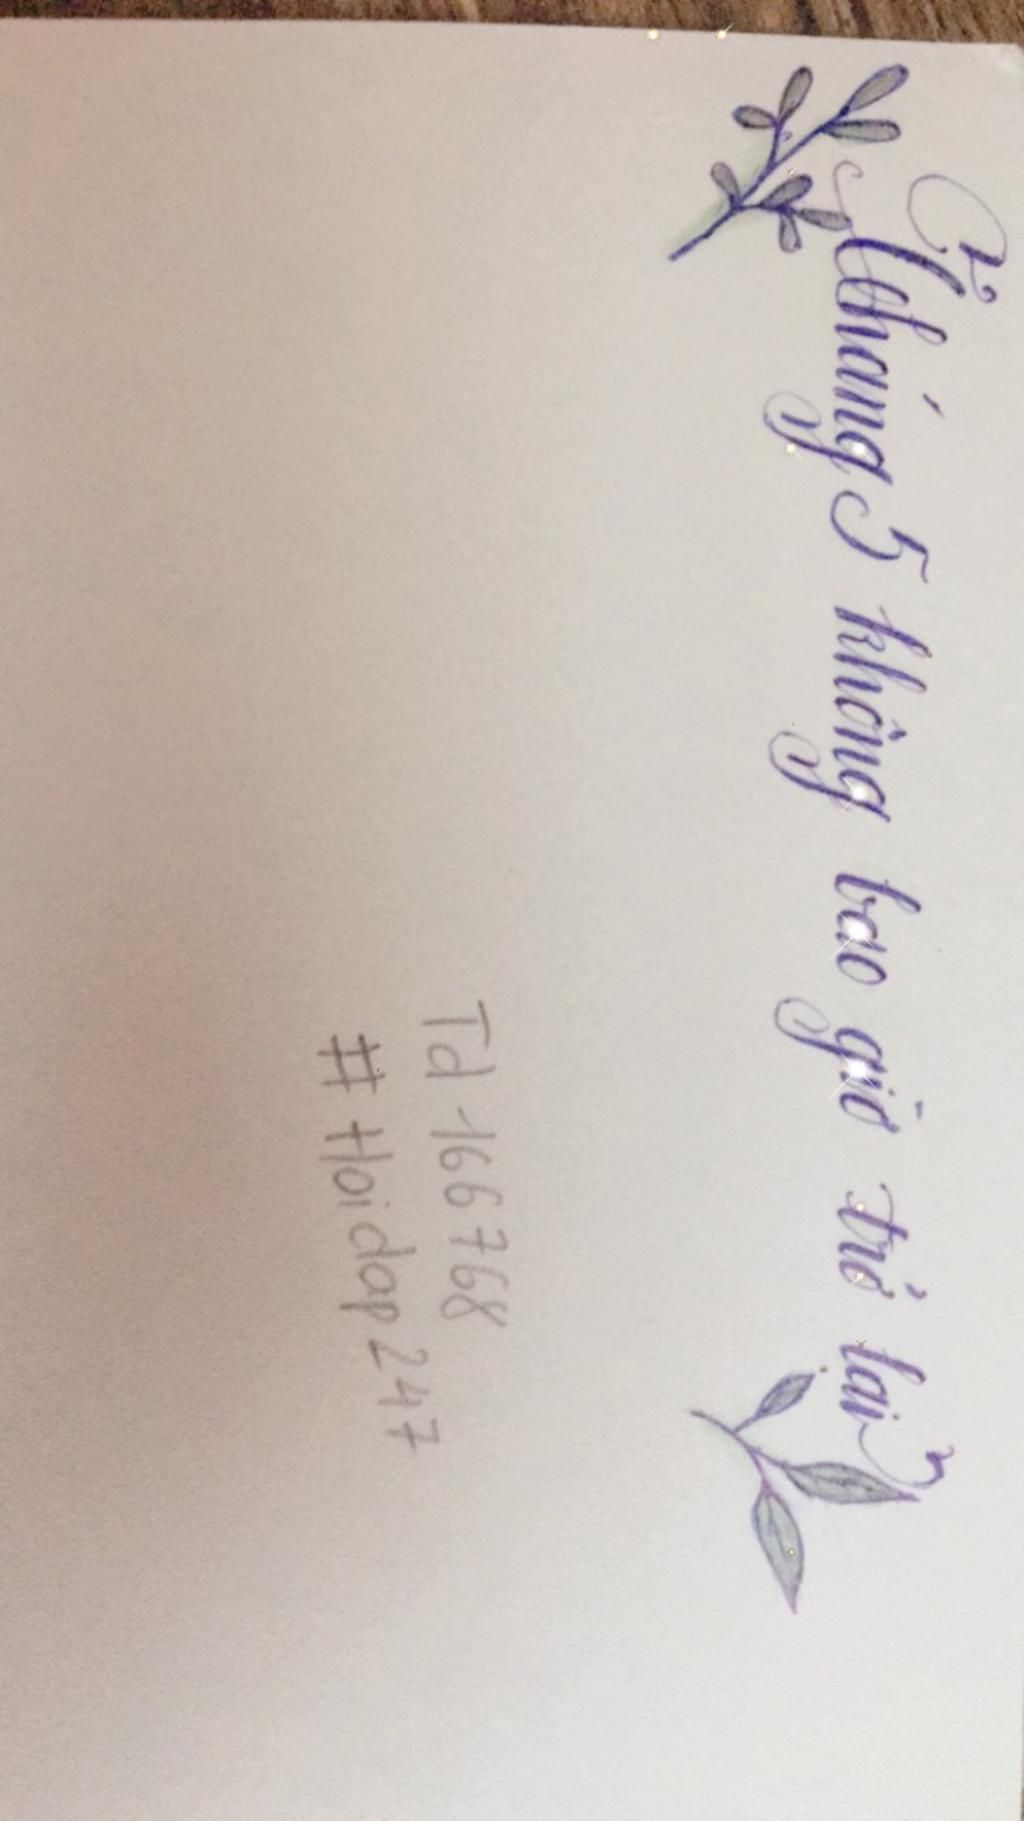 Tháng 5 không bao giờ trở lại
Td 166768
# Hoidap 247